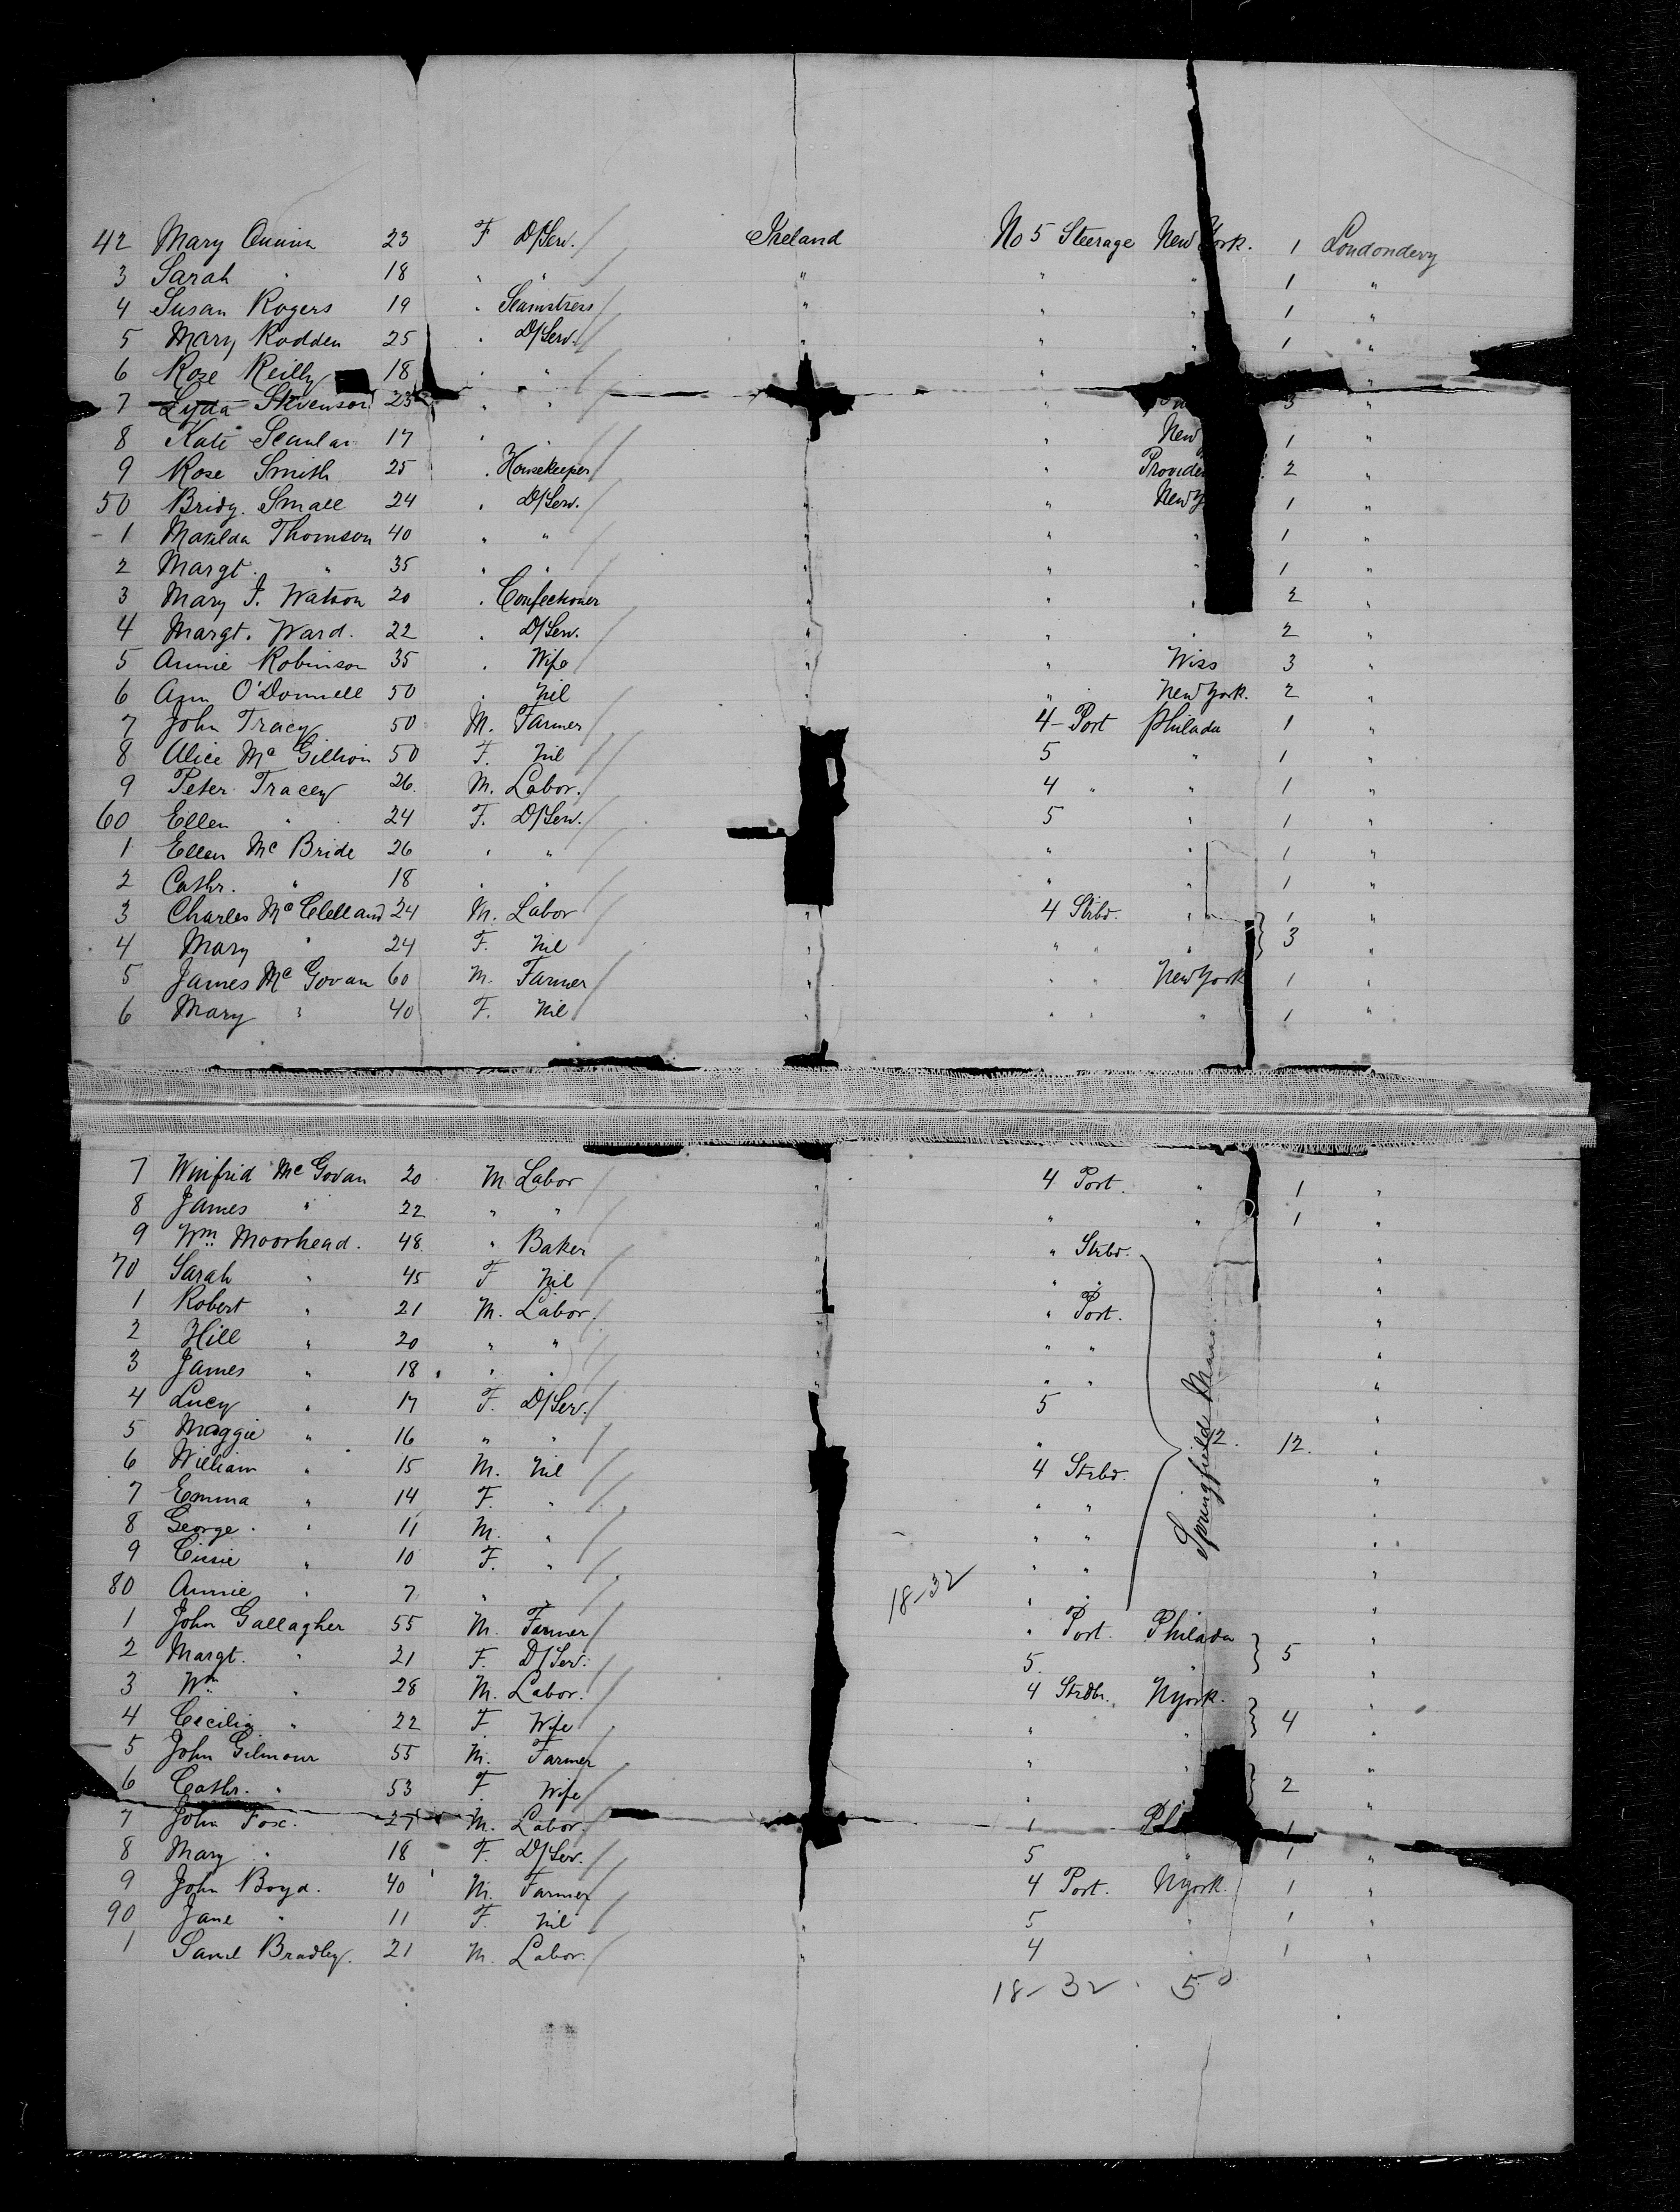 42 Mary Quinn 23 F D/Serv. / Ireland No 5 Steerage New York. 1 Londonderry
3 Sarah " 18 " " / " " " 1 "
4 Susan Rogers 19 " Seamstress / " " " 1 "
5 Mary Rodden 25 " D/Serv. / " " " 1 "
6 Rose Reilly 18 " " / " "
7 Lyda Stevenson 23 " " / " 3 "
8 Kate Scanlan 17 " " / " New 1 "
9 Rose Smith 25 " Housekeeper / " " Provide 2 "
50 Bridg. Small 24 " D/Serv. / " " New Y 1 "
1 Matilda Thomson 40 " " / " " " 1 "
2 Margt. " 35 " " / " " " 1 "
3 Mary J. Watson 20 " Confectioner " " " 2 "
4 Margt. Ward. 22 " D/Serv. / " " " 2 "
5 Annie Robinson 35 " Wife / " " Wiss 3 "
6 Ann O'Donnell 50 " Nil / " " New York. 2 "
7 John Tracy 50 M. Farmer / 4 - Port Philada 1 "
8 Alice Mc Gillion 50 F. Nil / 5 " 1 "
9 Peter Tracey 26. M. Labor. / 4 " " 1 "
60 Ellen " 24 F. D/Serv. / 5 " 1 "
1 Ellen Mc Bride 26 " " / " " 1 "
2 Cathr. " 18 " " / " " 1 "
3 Charles Mc Clelland 24 M. Labor / " 4 Strbd. " 1 "
4 Mary " 24 F. Nil / " " " " 3 "
5 James Mc Govan 60 M. Farmer / " " " New York 1 "
6 Mary " 40 F. Nil / " " " " 1 "
7 Winfrid Mc Govan 20 M Labor / " 4 Port. " 1 "
8 James " 22 " " / " " " 1 "
9 Wm. Moorhead. 48 " Baker / " " Strbd. "
70 Sarah " 45 F Nil / " " " "
1 Robert " 21 M. Labor. / " " Port. "
2 Hill " 20 " " / " " " "
3 James " 18 " " / " " " "
4 Lucy " 17 F. D/Serv. / 5 "
5 Maggie " 16 " " / " Springfield Mass. 12. 12. "
6 William " 15 M. Nil / 4 Strbd. "
7 Emma " 14 F. " / " " "
8 George. " 11 M. " / " " "
9 Cissie " 10 F. " / " " "
80 Annie " 7 " " / 18-32 " " "
1 John Gallagher 55 M. Farmer / " Port. Philada "
2 Margt. " 21 F. D/Serv. / 5. " 5 "
3 Wm. " 28 M. Labor. / 4 Strdbr. NYork. "
4 Cecilia " 22 F Wife / " " 4 "
5 John Gilmour 55 M. Farmer / " " "
6 Cathr. " 53 F. Wife / " 2 "
7 John Fox. 27 M. Labor. / 1
8 Mary " 18 F. D/Serv. / 5 " 1 "
9 John Boyd. 40 M. Farmer / 4 Port. NYork. 1 "
90 Jane " 11 F. Nil / " 5 " 1 "
1 Saml Bradley. 21 M. Labor. / " 4 " 1 "
18-32 50